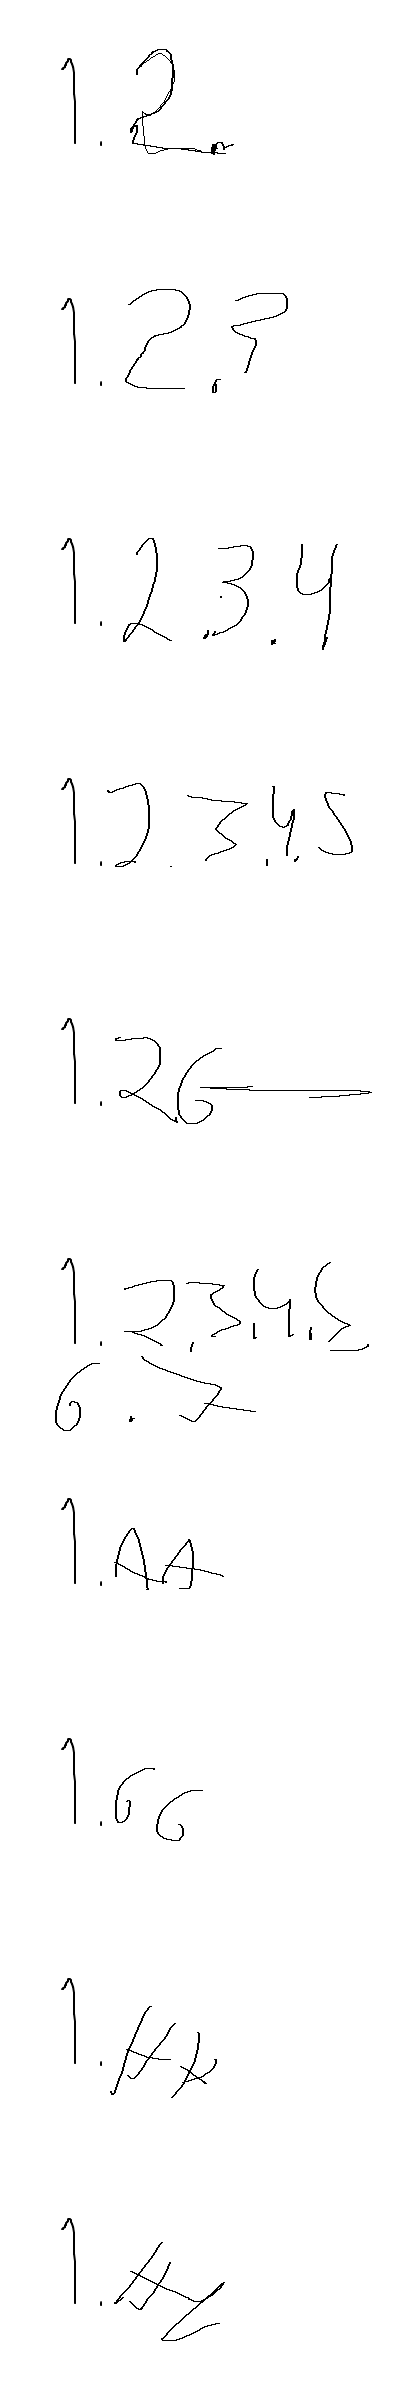 1.2.
1.2.3
1.2.3.4
1.2.3.4.5
1.26
1.2.3.4.5
6.7
1.AA
1.66
1.
1.